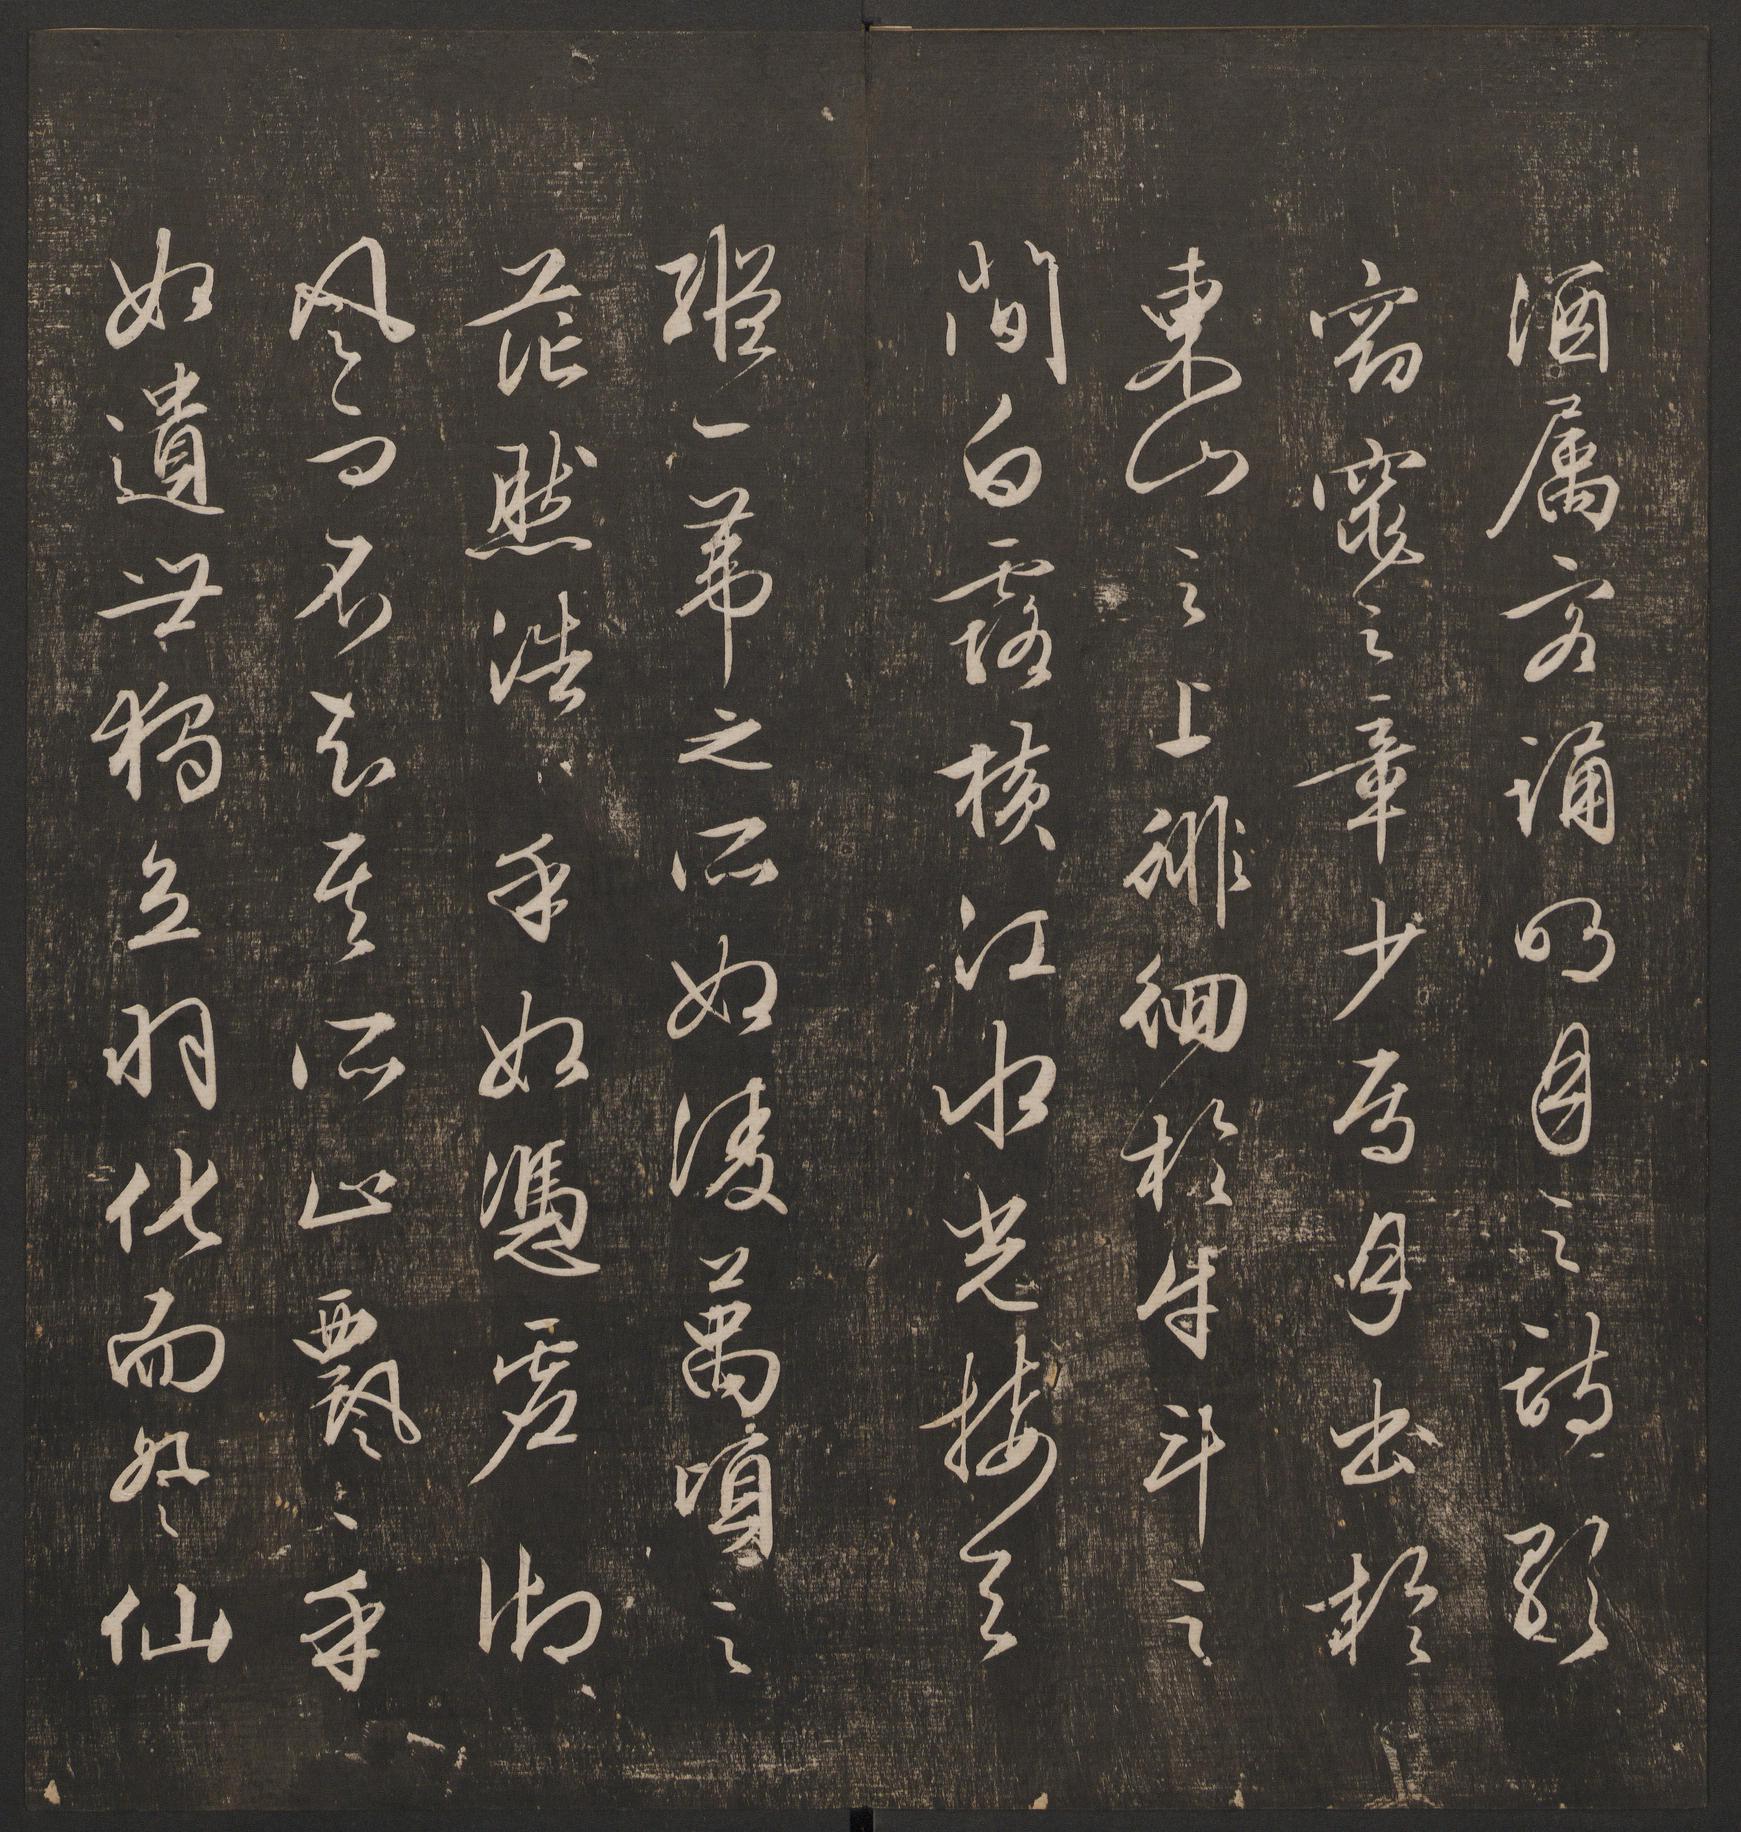 酒属客誦明月之詩歌
窈窕之章少焉月出於
東山之上徘徊於牛斗之
間白露横江水光接天
縱一葦之所如淩萬頃之
茫然浩〻乎如憑虚御
風而不知其所止飄〻乎
如遺世獨立羽化而登仙